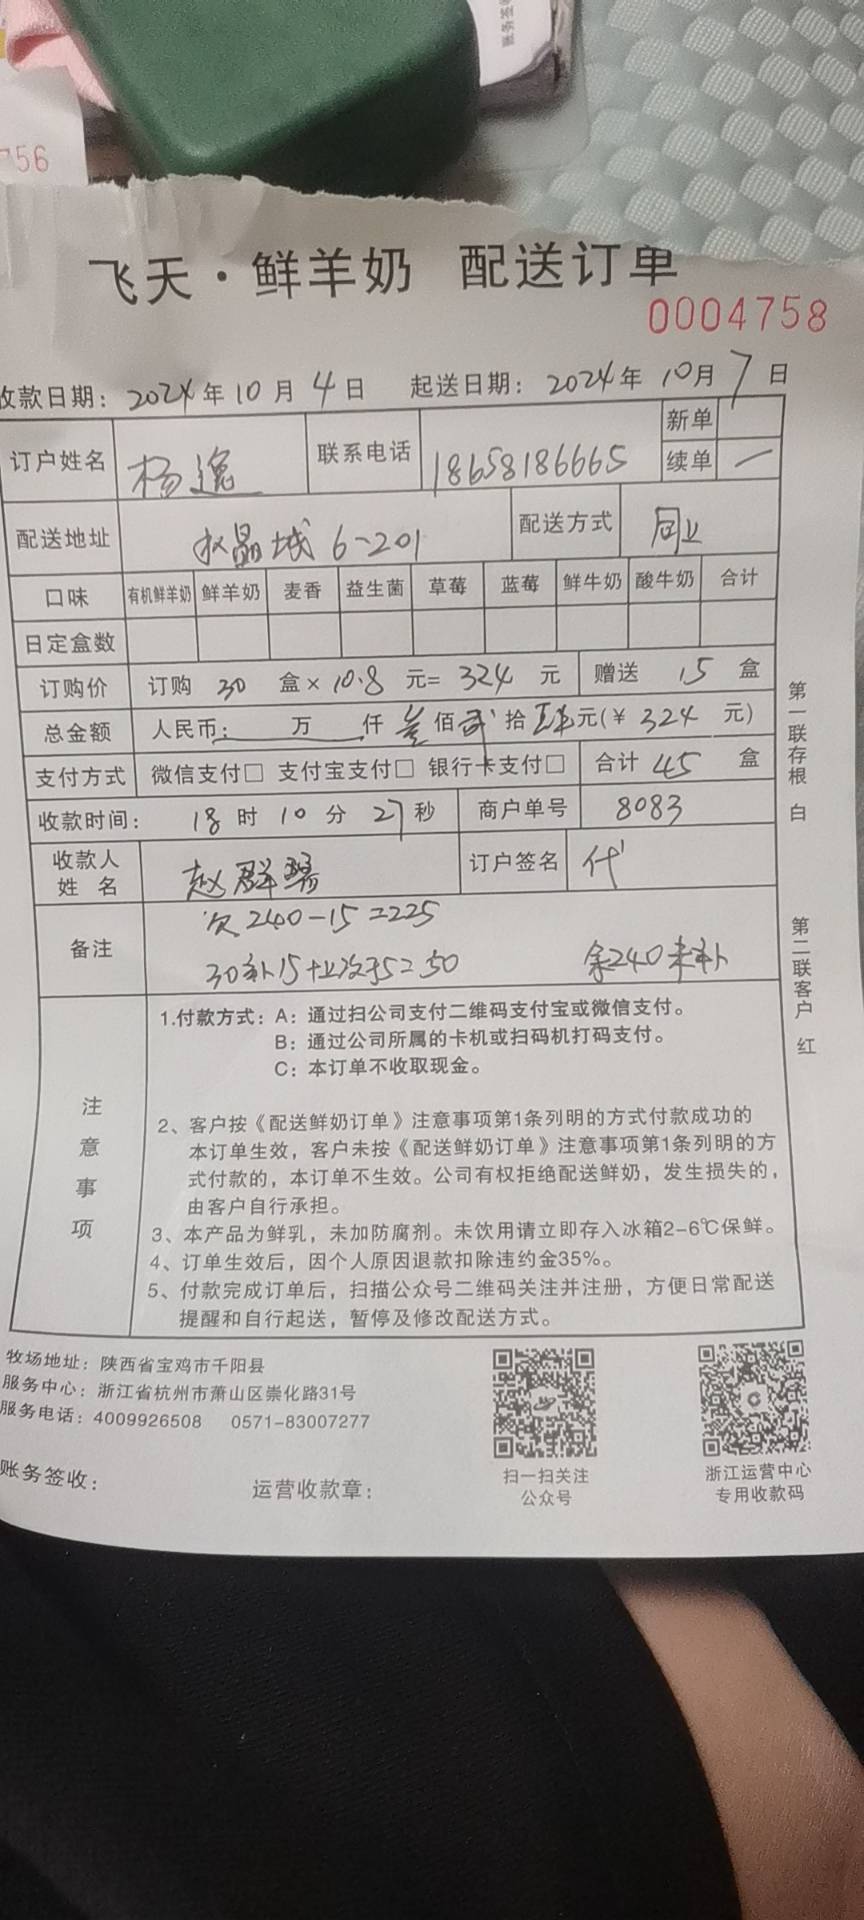 756
飞天·鲜羊奶 配送订单
0004758
收款日期：2024年10月4日 起送日期：2024年10月7日
订户姓名 杨逸 联系电话 18658186665 新单
续单
配送地址 晶城6-201 配送方式 同上
口味 有机鲜羊奶 鲜羊奶 麦香 益生菌 草莓 蓝莓 鲜牛奶 酸牛奶 合计
日定盒数
订购价 订购 30 盒×10.8元=324元 赠送 15 盒
总金额 人民币：万仟叁佰贰拾肆元(¥324元)
支付方式 微信支付□ 支付宝支付□ 银行卡支付□ 合计 45 盒
收款时间：18时10分27秒 商户单号 8083
收款人姓名 赵群 订户签名 代
备注 欠240-15=225
30补15+上次欠5=50 余240未补
注意事项
1.付款方式：A：通过扫公司支付二维码支付宝或微信支付。
B：通过公司所属的卡机或扫码机打码支付。
C：本订单不收取现金。
2、客户按《配送鲜奶订单》注意事项第1条列明的方式付款成功的
本订单生效，客户未按《配送鲜奶订单》注意事项第1条列明的方
式付款的，本订单不生效。公司有权拒绝配送鲜奶，发生损失的，
由客户自行承担。
3、本产品为鲜乳，未加防腐剂。未饮用请立即存入冰箱2-6℃保鲜。
4、订单生效后，因个人原因退款扣除违约金35%。
5、付款完成订单后，扫描公众号二维码关注并注册，方便日常配送
提醒和自行起送，暂停及修改配送方式。
第一联存根 白
第二联客户 红
牧场地址：陕西省宝鸡市千阳县
服务中心：浙江省杭州市萧山区崇化路31号
服务电话：4009926508 0571-83007277
账务签收： 运营收款章：
扫一扫关注
公众号
浙江运营中心
专用收款码